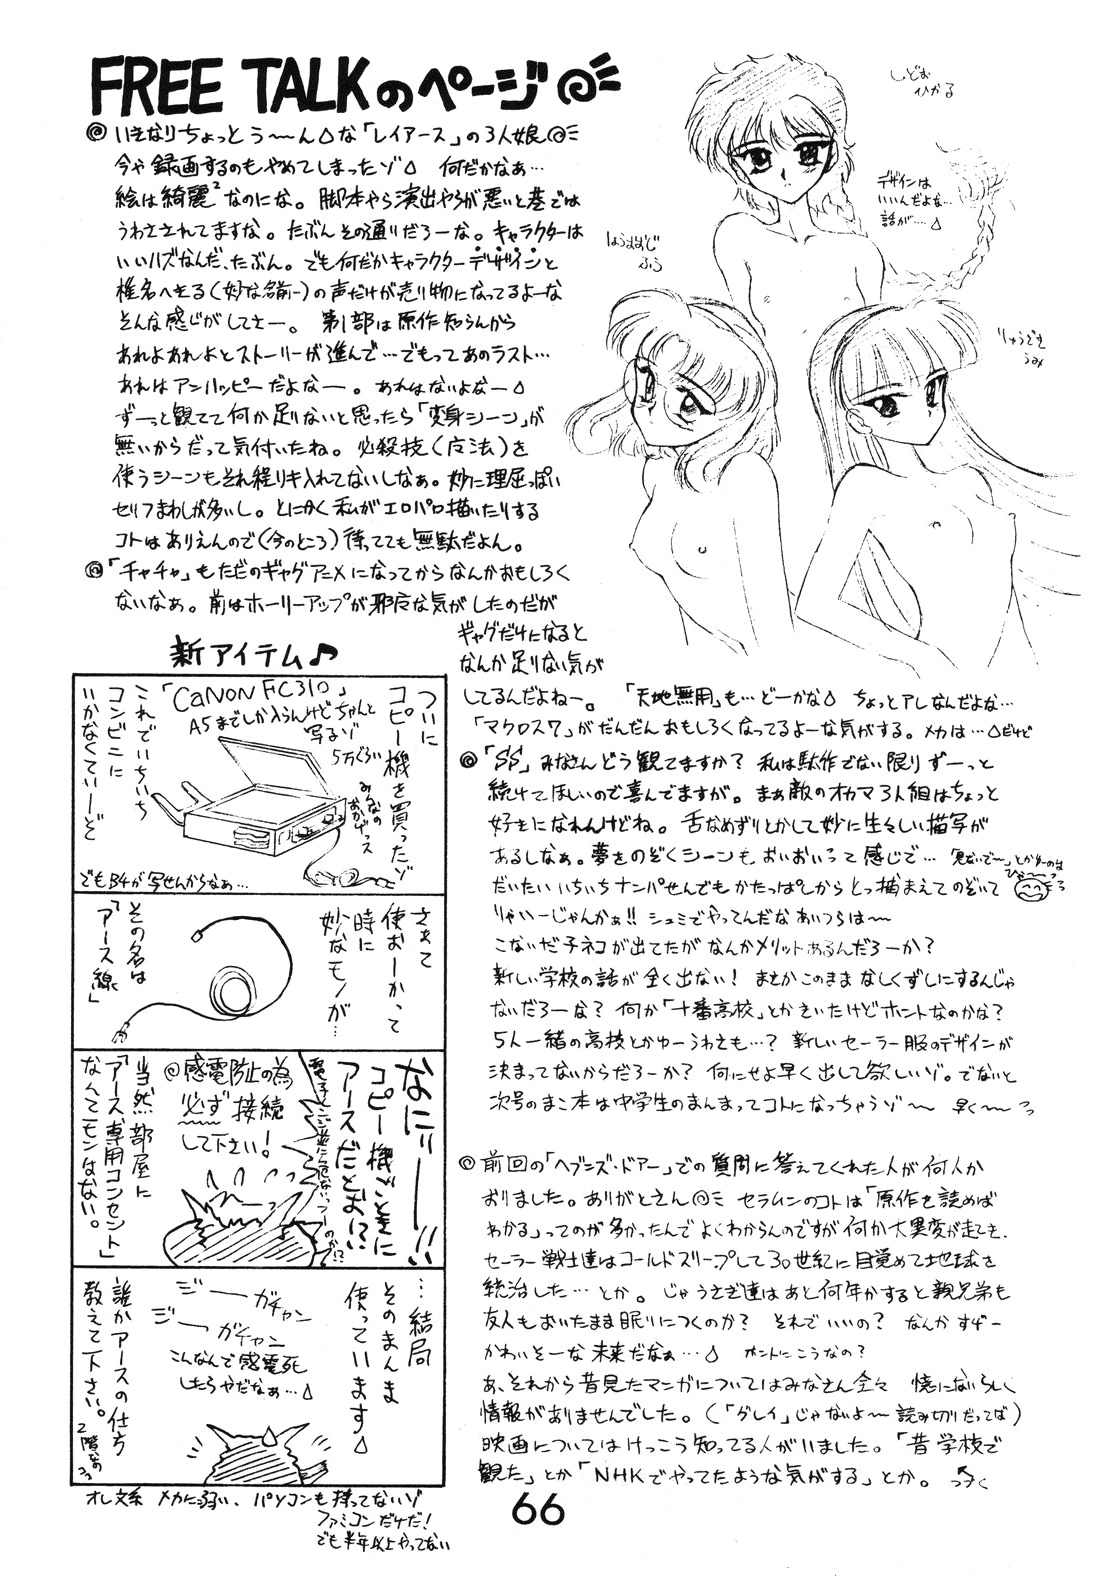 FREE TALKのページ
いきなりちょっとう〜んな「レイアース」の3人娘
今や録画するのもやめてしまったゾ 何だかなぁ…
絵は綺麗²なのにな。脚本やら演出やらが悪いと巷では
うわさされてますな。たぶんその通りだろーな。キャラクターは
いいハズなんだ、たぶん。でも何だかキャラクターデザインと
椎名へきる(妙な名前ー)の声だけが売り物になってるよーな
そんな感じがしてさー。 第1部は原作知らんから
あれよあれよとストーリーが進んで…でもってあのラスト…
あれはアンハッピーだよなー。あれはないよなー
ずーっと観てて何か足りないと思ったら「変身シーン」が
無いからだって気付いたね。必殺技(魔法)を
使うシーンもそれ程リキ入れてないしなぁ。妙に理屈っぽい
セリフまわしが多いし。とにかく私がエロパロ描いたりする
コトはありえんので(今のところ)待ってても無駄だよん。
「チャチャ」もただのギャグアニメになってからなんかおもしろく
ないなぁ。前はホーリーアップが邪魔な気がしたのだが
ギャグだけになると
なんか足りない気が
してるんだよねー。 「天地無用」も…どーかな ちょっとアレなんだよな…
「マクロス7」がだんだんおもしろくなってるよーな気がする。メカは…だけど
しどお
ひかる
デザインは
いいんだよな…
話が…
ほうおおじ
ふう
りゅうざき
うみ
新アイテム♪
ついに
コピー機を買ったゾ
「CANON FC310」
A5までしか入らんけどちゃんと
写るゾ
5万ぐらい
みんなの
おかげっス
これでいちいち
コンビニに
いかなくていーぞ
でもB4が写せんからなぁ…
さぁて
使おーかって
時に
妙なモノが…
その名は
「アース線」
なにィーー!!
コピー機ごときに
アースだとお!?
@感電防止の為
必ず接続
して下さい!
当然部屋に
「アース専用コンセント」
なんてモンはない。
…結局
そのまんま
使っています
ジーーガチャン
ジーーガチャン
こんなんで感電死
したらやだなぁ…
誰かアースの仕方
教えて下さい。
2階なの
オレ文系 メカに弱い、パソコンも持ってないゾ
ファミコンだけだ!
でも半年以上やってない
「SS」みなさんどう観てますか? 私は駄作でない限りずーっと
続けてほしいので喜んでますが。まあ敵のオカマ3人組はちょっと
好きになれんけどね。舌なめずりとかして妙に生々しい描写が
あるしなぁ。夢をのぞくシーンも、おいおいって感じで…
だいたいいちいちナンパせんでもかたっぱしからとっ捕まえてのぞいて
りゃいーじゃんかぁ!! シュミでやってんだなあいつらは〜
こないだ子ネコが出てたがなんかメリットあるんだろーか?
新しい学校の話が全く出ない! まさかこのままなしくずしにするんじゃ
ないだろーな? 何か「十番高校」とかきいたけどホントなのかな?
5人一緒の高校とかゆーうわさも…? 新しいセーラー服のデザインが
決まってないからだろーか? 何にせよ早く出して欲しいゾ。でないと
次号のまこ本は中学生のまんまってコトになっちゃうゾ〜 早く〜
前回の「ヘブンズ・ドアー」での質問に答えてくれた人が何人か
おりました。ありがとさん@ セラムンのコトは「原作を読めば
わかる」ってのが多かったんでよくわからんのですが何か大異変が起きて、
セーラー戦士達はコールドスリープして30世紀に目覚めて地球を
統治した…とか。じゃうさぎ達はあと何年かすると親兄弟も
友人もおいたまま眠りにつくのか? それでいいの? なんかすげー
かわいそーな未来だなぁ… ホントにこうなの?
あ、それから昔見たマンガについてはみなさん全々 憶にないらしく
情報がありませんでした。(「グレイ」じゃないよ〜読み切りだってば)
映画についてはけっこう知ってる人がいました。「昔学校で
観た」とか「NHKでやってたような気がする」とか。 つづく
66